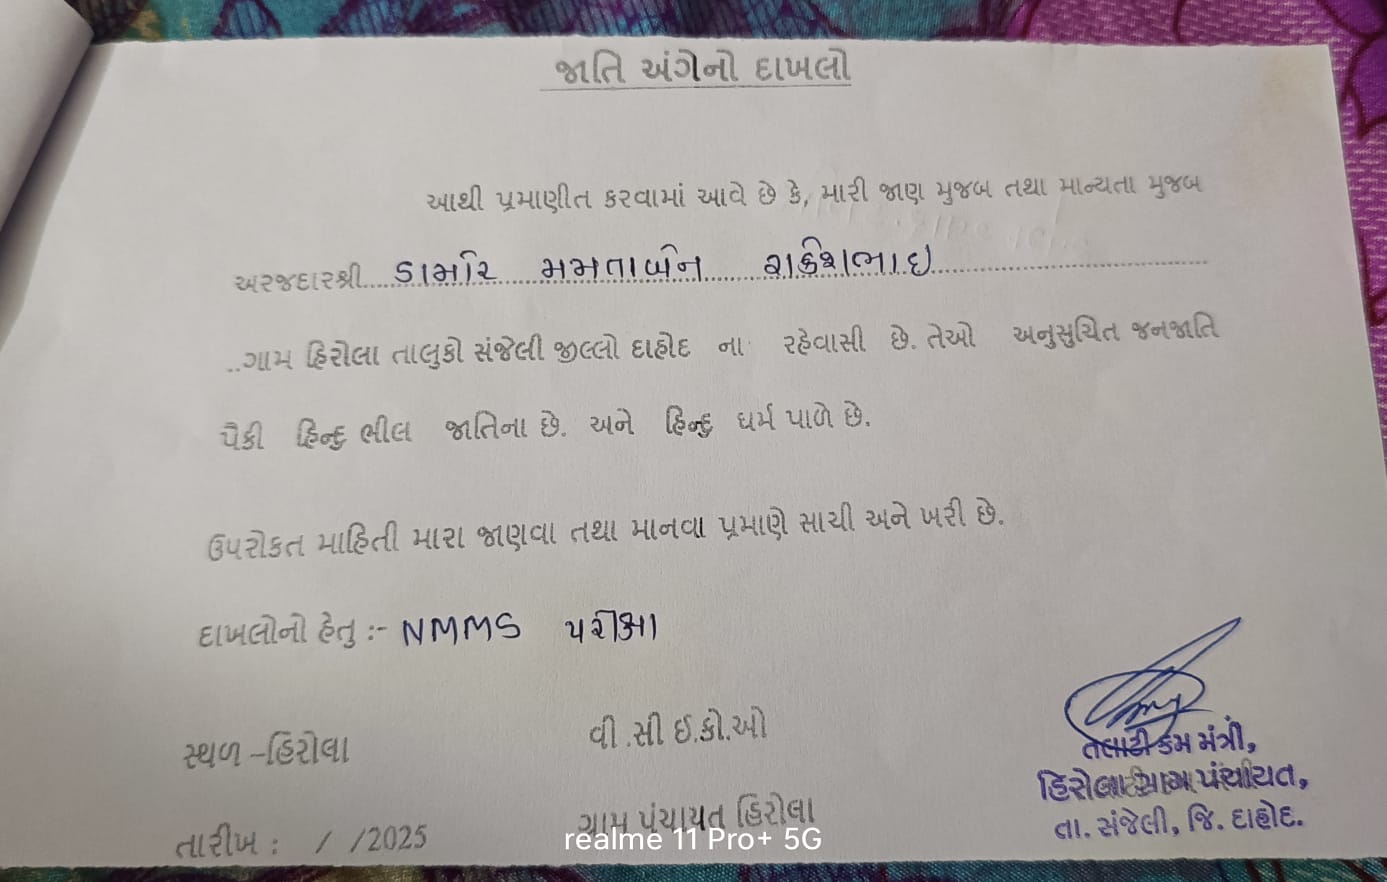 જાતિ અંગેનો દાખલો
આથી પ્રમાણીત કરવામાં આવે છે કે, મારી જાણ મુજબ તથા માન્યતા મુજબ
અરજદારશ્રી.....ડામોર મમતાબેન રાકેશભાઇ..............................
..ગામ હિરોલા તાલુકો સંજેલી જીલ્લો દાહોદ ના રહેવાસી છે. તેઓ અનુસુચિત જનજાતિ
પૈકી હિન્દુ ભીલ જાતિના છે. અને હિન્દુ ધર્મ પાળે છે.
ઉપરોકત માહિતી મારા જાણવા તથા માનવા પ્રમાણે સાચી અને ખરી છે.
દાખલોનો હેતુ :- NMMS પરીક્ષા
સ્થળ -હિરોલા
વી.સી ઈ.કો.ઓ
ગ્રામ પંચાયત હિરોલા
તારીખ : / /2025
તલાટી કમ મંત્રી,
હિરોલા ગ્રામ પંચાયત,
તા. સંજેલી, જિ. દાહોદ.
realme 11 Pro+ 5G